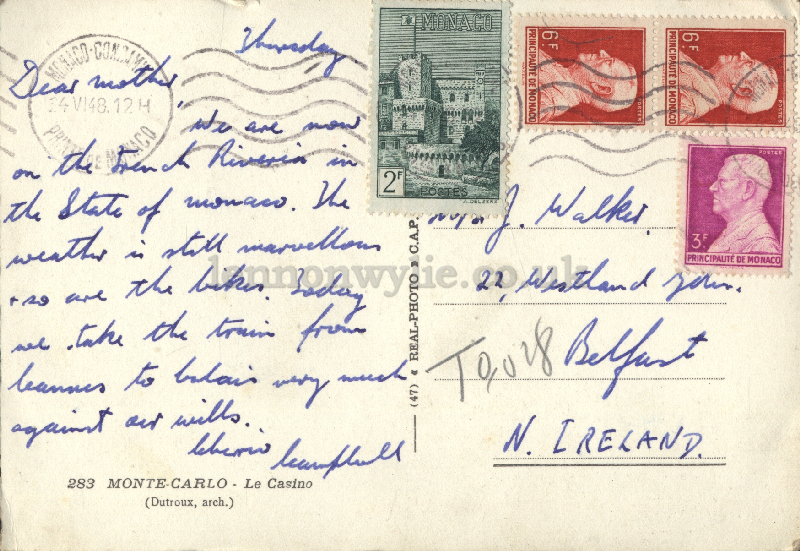 Thursday
Dear mother,
We are now
on the French Riveria in
the State of monaco. The
weather is still marvellous
+ so are the bikes. Today
we take the train from
Cannes to Calais very much
against our wills.
Cheerio
Campbell
283 MONTE-CARLO - Le Casino
(Dutroux, arch.)
MONACO-CONDAMINE
24 VI 48. 12 H
PRINCIPAUTÉ DE MONACO
MONACO
2F
POSTES
6F
PRINCIPAUTÉ DE MONACO
POSTES
6F
PRINCIPAUTÉ DE MONACO
POSTES
POSTES
3F
PRINCIPAUTÉ DE MONACO
(47) REAL-PHOTO C.A.P.
J. Walker.
22, Westland Gdns.
Belfast
N. IRELAND.
T 0,028
lennonwylie.co.uk